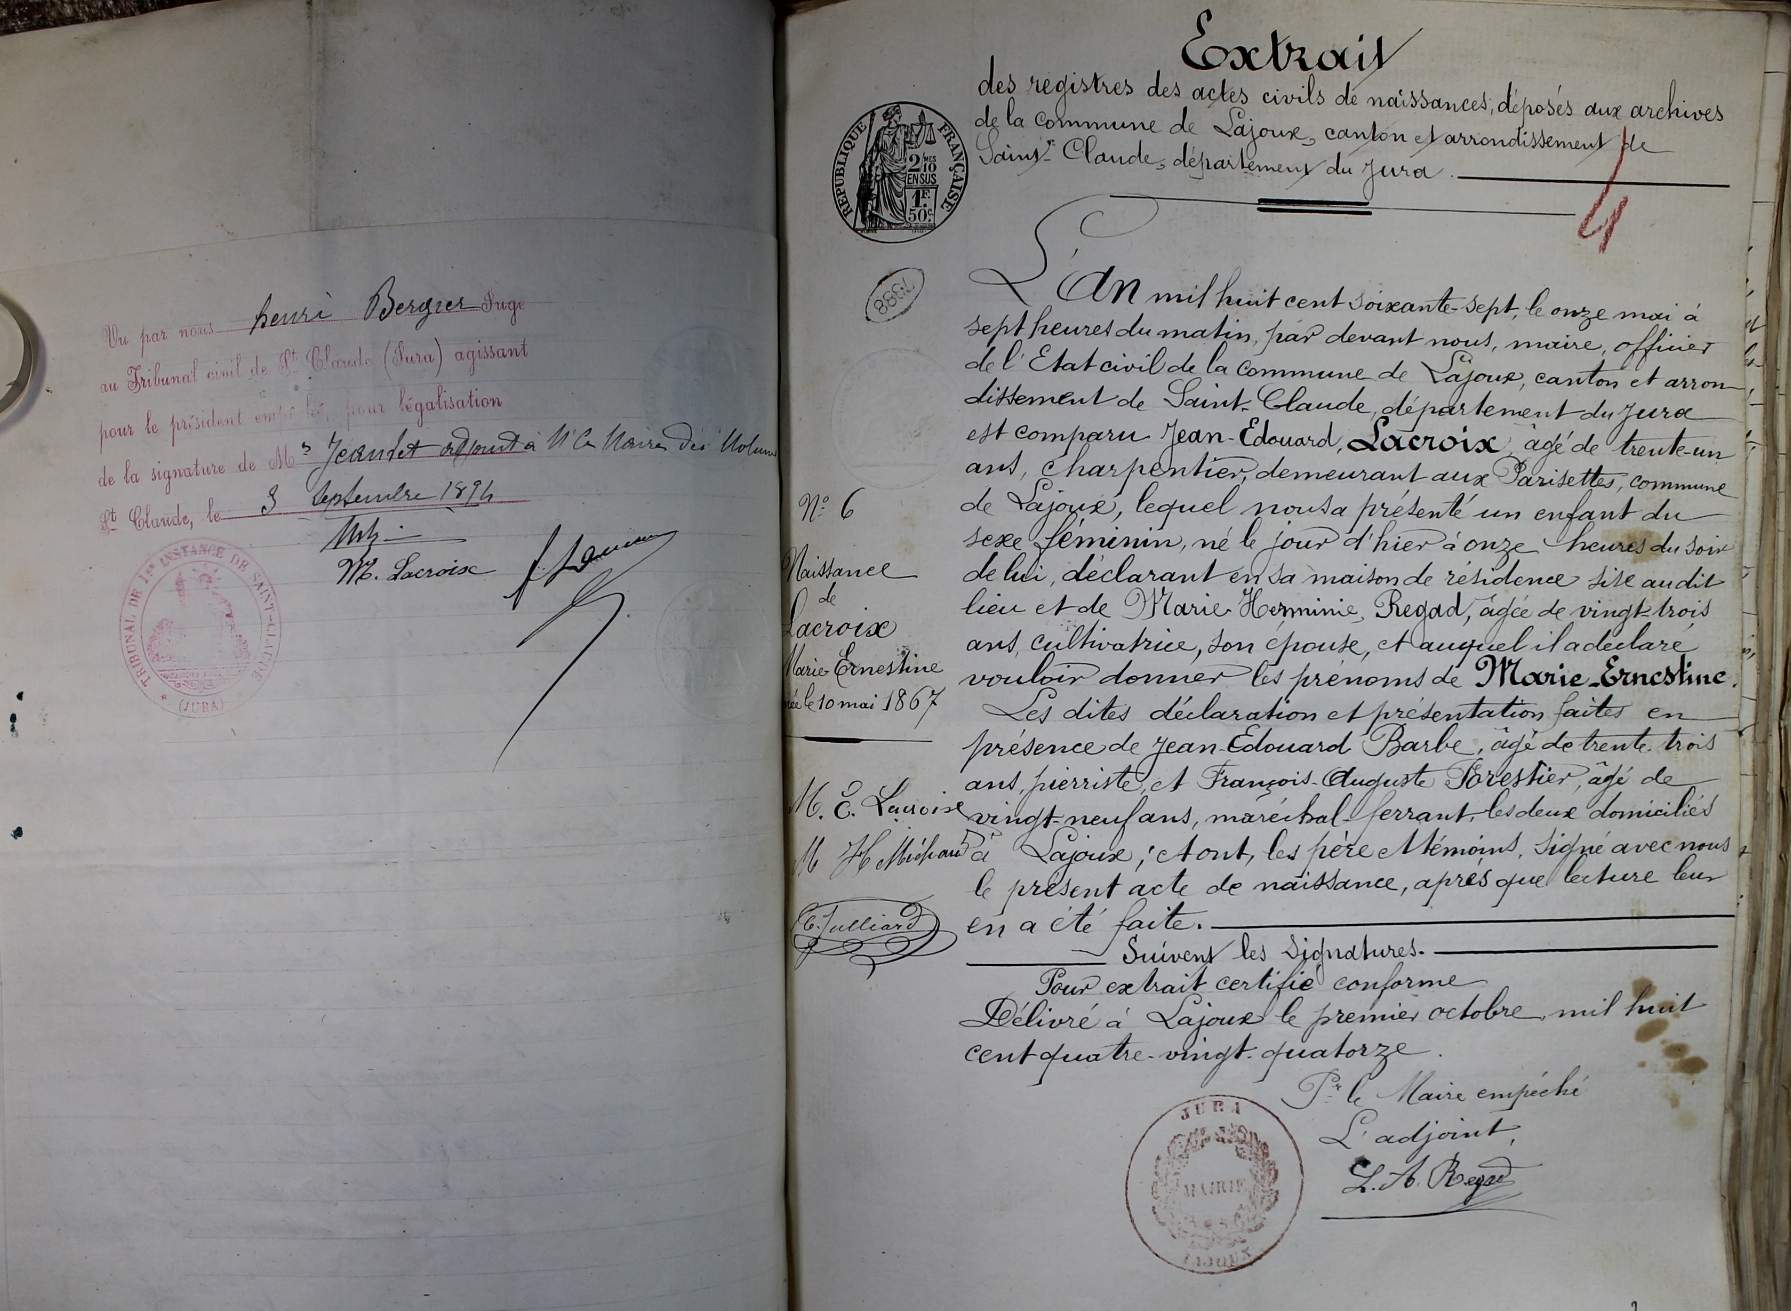 Vu par nous henri Bergier Juge
au Tribunal civil de St Claude (Jura) agissant
pour le président empêché, pour légalisation
de la signature de Mr Jeantet adjoint à Mr le Maire des
St Claude, le 3 septembre 1894
M. Lacroix
TRIBUNAL DE 1re INSTANCE DE SAINT-CLAUDE
(JURA)
Extrait
des registres des actes civils de naissances, déposés aux archives
de la commune de Lajoux, canton et arrondissement de
Saint-Claude, département du Jura.
RÉPUBLIQUE FRANÇAISE
2/10 MES
EN SUS
1F.
50c.
4
7388
L'An mil huit cent soixante-sept, le onze mai à
sept heures du matin, par devant nous, maire, officier
de l'Etat civil de la commune de Lajoux, canton et arron-
dissement de Saint-Claude, département du Jura
est comparu Jean-Edouard, Lacroix, âgé de trente-un
ans, charpentier, demeurant aux Parisettes, commune
de Lajoux, lequel nous a présenté un enfant du
sexe féminin, né le jour d'hier à onze heures du soir
de lui, déclarant en sa maison de résidence sise audit
lieu et de Marie-Herminie, Regad, âgée de vingt-trois
ans, cultivatrice, son épouse, et auquel il a déclaré
vouloir donner les prénoms de Marie-Ernestine.
Les dites déclaration et présentation faites en
présence de Jean-Edouard Barbe, âgé de trente-trois
ans, pierriste, et François-Auguste Forestier, âgé de
vingt-neuf ans, maréchal-ferrant, les deux domiciliés
à Lajoux; et ont, les père et témoins, signé avec nous
le présent acte de naissance, après que lecture leur
en a été faite.
Suivent les signatures.
Pour extrait certifié conforme
Délivré à Lajoux le premier octobre mil huit
cent quatre-vingt-quatorze.
Pr le Maire empêché
L'adjoint,
L. A. Regad
JURA
MAIRIE
LAJOUX
No 6
Naissance
de
Lacroix
Marie-Ernestine
née le 10 mai 1867
M. E. Lacroix
M H Michaud
C. Julliard